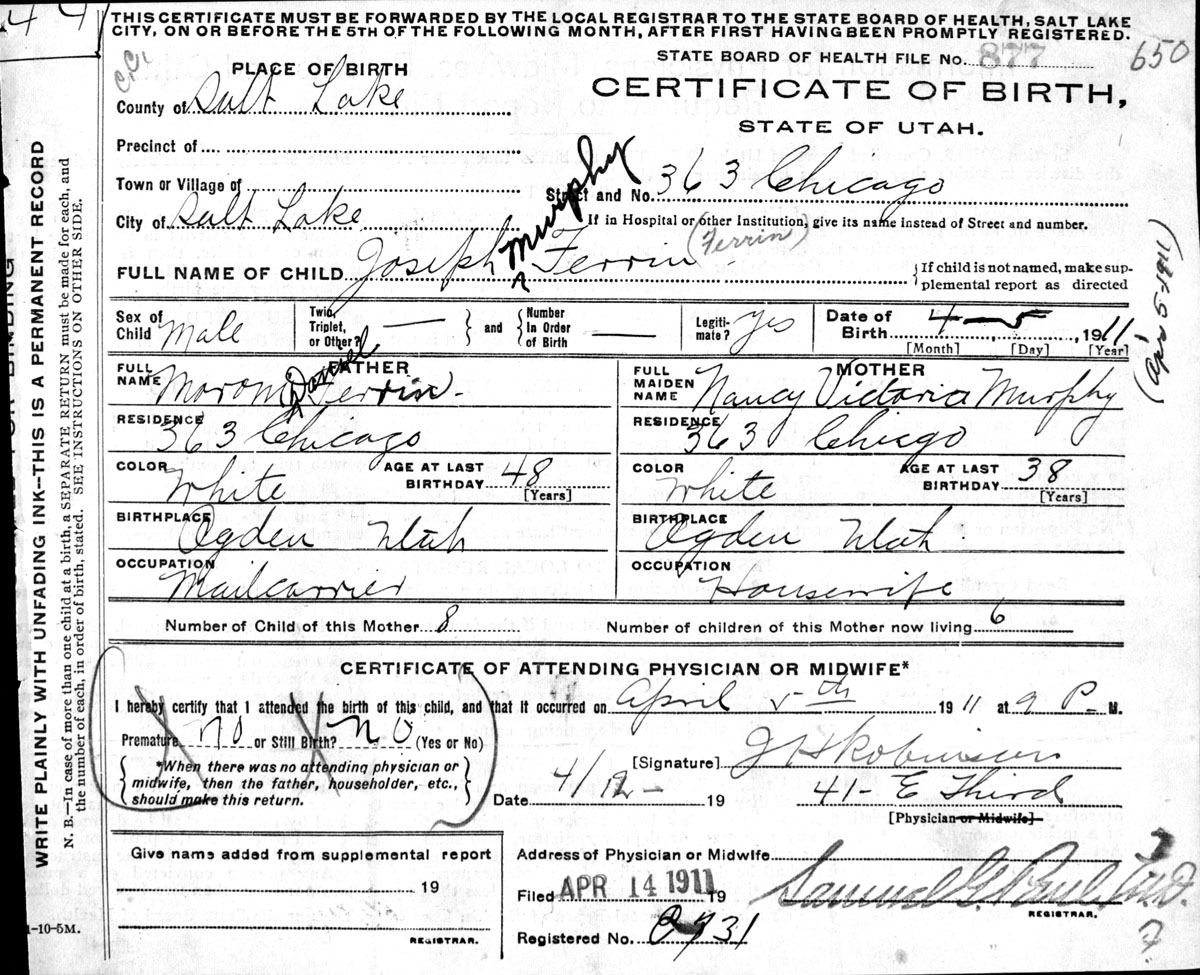 44
THIS CERTIFICATE MUST BE FORWARDED BY THE LOCAL REGISTRAR TO THE STATE BOARD OF HEALTH, SALT LAKE
CITY, ON OR BEFORE THE 5TH OF THE FOLLOWING MONTH, AFTER FIRST HAVING BEEN PROMPTLY REGISTERED.
STATE BOARD OF HEALTH FILE No. 877 650
C.C.
PLACE OF BIRTH
CERTIFICATE OF BIRTH,
County of Salt Lake
STATE OF UTAH.
Precinct of
Town or Village of
Street and No. 363 Chicago
City of Salt Lake
If in Hospital or other Institution, give its name instead of Street and number.
FULL NAME OF CHILD Joseph Murphy Ferrin (Ferrin)
If child is not named, make sup-
plemental report as directed
Sex of Child Male
Twin, Triplet, or Other? —
and
Number In Order of Birth —
Legiti-mate? yes
Date of Birth 4 - 5, 1911
[Month] [Day] [Year]
(Apr 5-1911)
FATHER
FULL NAME Moroni Daniel Ferrin.
MOTHER
FULL MAIDEN NAME Nancy Victoria Murphy
RESIDENCE 363 Chicago
RESIDENCE 363 Chicago
COLOR White
AGE AT LAST BIRTHDAY 48 [Years]
COLOR White
AGE AT LAST BIRTHDAY 38 [Years]
BIRTHPLACE Ogden Utah
BIRTHPLACE Ogden Utah
OCCUPATION Mailcarrier
OCCUPATION Housewife
Number of Child of this Mother 8
Number of children of this Mother now living 6
CERTIFICATE OF ATTENDING PHYSICIAN OR MIDWIFE*
I hereby certify that I attended the birth of this child, and that it occurred on April 5th 1911 at 9 P. M.
Premature No or Still Birth? No (Yes or No)
*When there was no attending physician or
midwife, then the father, householder, etc.,
should make this return.
[Signature] J H Robinson
Date 4/12 - 19
41- E Third
[Physician or Midwife]
Give name added from supplemental report
19
REGISTRAR.
Address of Physician or Midwife
Filed APR 14 1911 19
REGISTRAR.
Registered No.
WRITE PLAINLY WITH UNFADING INK--THIS IS A PERMANENT RECORD
N. B.--In case of more than one child at a birth, a SEPARATE RETURN must be made for each, and
the number of each, in order of birth, stated. SEE INSTRUCTIONS ON OTHER SIDE.
1-10-5M.